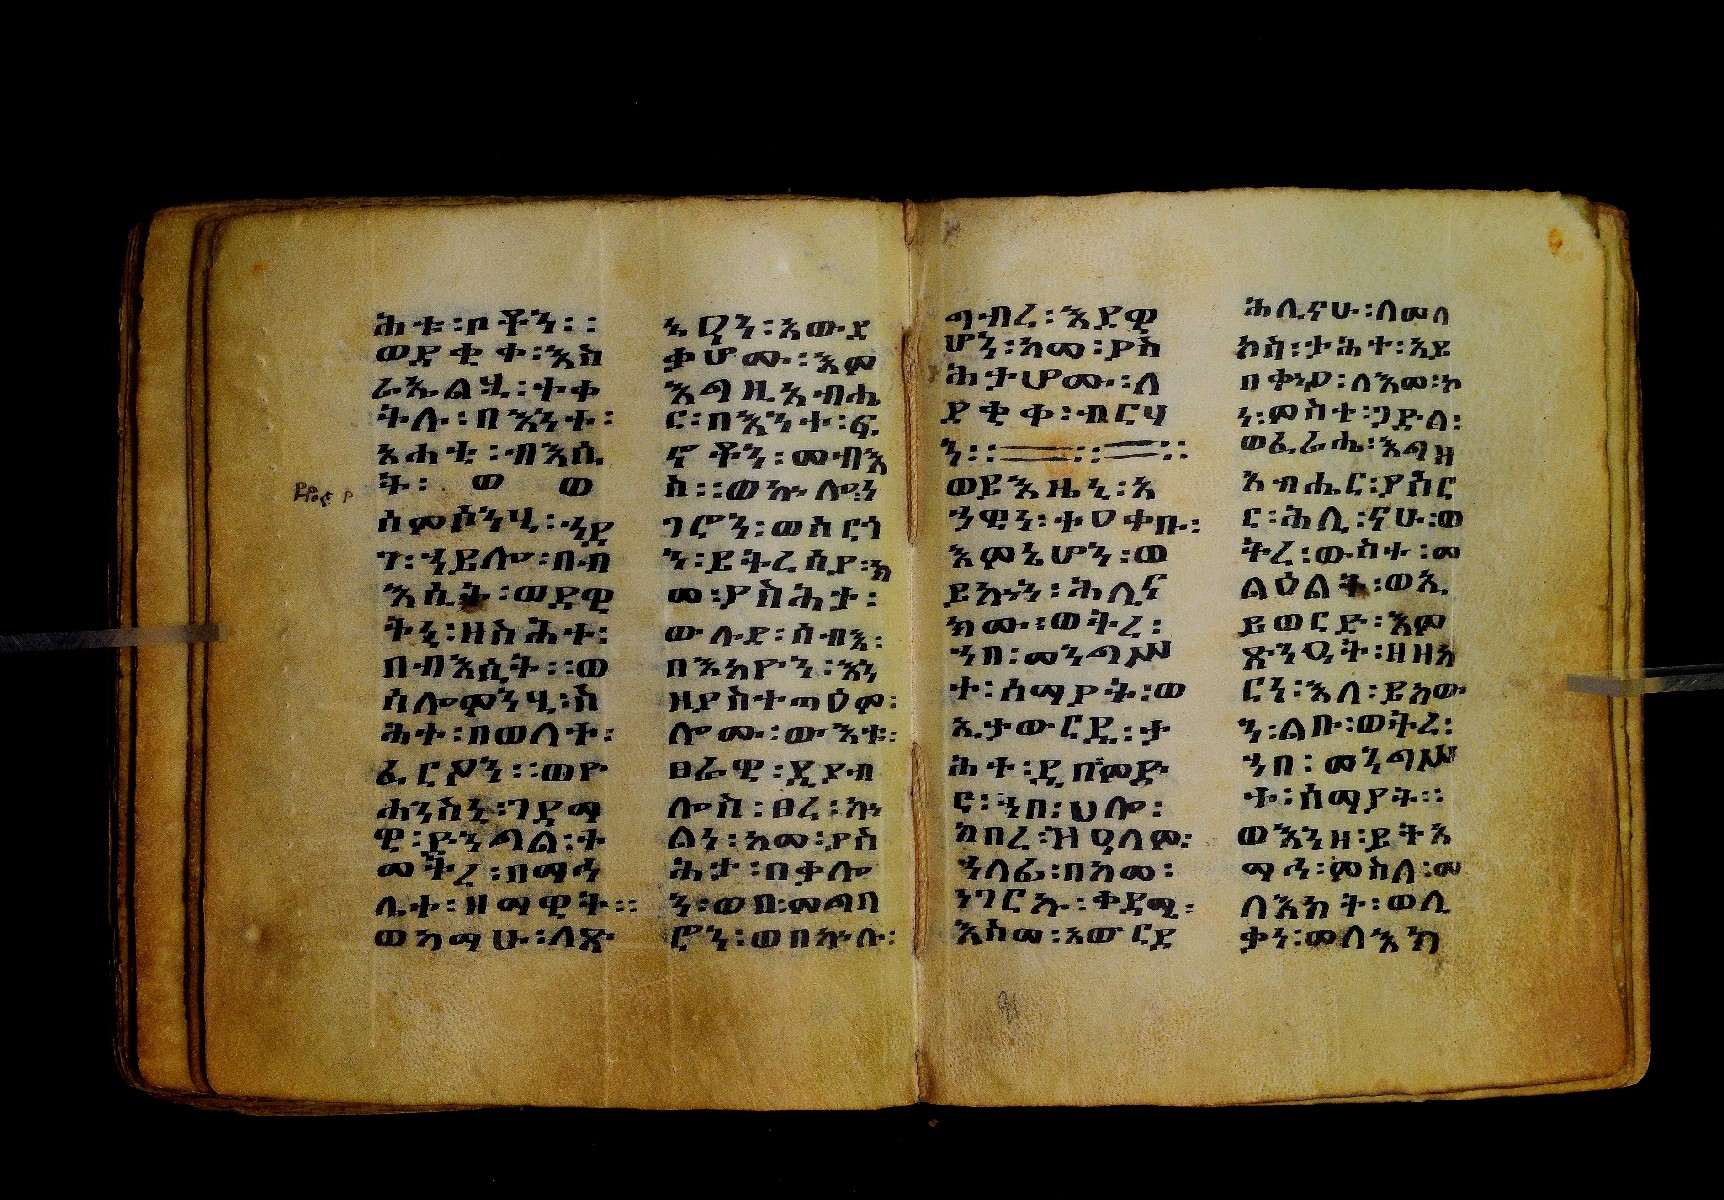 ሕቱ ፡ ቦቶን ፡ ፡
ወደቂቀ ፡ እስ
ራኤልሂ ፡ ተቀ
ትሉ ፡ በእንተ ፡
አሐቲ ፡ ብእሲ
ት ፡ ወ ወ
ሰምሶንሂ ፡
ኀይሎ ፡ በብ
እሲት ፡ ወደዊ
ትኒ ፡ ዘስሕተ ፡
በብእሲት ፡ ፡ ወ
ሰሎሞንሂ ፡ ስ
ሕተ ፡ በወለተ ፡
ፈርዖን ፡ ፡ ወዮ
ሐንስኒ ፡ ገደማ
ዊ ፡ ድንግል ፡ ት
መትረ ፡ በማኅ
ሌተ ፡ ዘማዊት ፡ ፡
ወአማሁ ፡ ለጽ
ኔዛን ፡ አውደ
ቃሆሙ ፡ እም
እግዚአብሔ
ር ፡ በእንተ ፡ ፍ
ኖቶን ፡ መብእ
ስ ፡ ፡ ወኵሎን
ገሮን ፡ ወስርጎ
ን ፡ ይትረሰያ ፡ ከ
መ ፡ ያስሕታ ፡
ውሉደ ፡ ሰብእ ፡
በእከዮን ፡ እን
ዘያስተጣዕማ ፡
ሎሙ ፡ ውእቱ ፡
ፀራዊ ፡ ጺያብ
ሎስ ፡ ፀረ ፡ ኵ
ልነ ፡ አመ ፡ ያስ
ሕታ ፡ በቃሎ
ን ፡ ወበ ፡ መግበ
ሮን ፡ ወበኵሉ ፡
ግብረ ፡ እደዊ
ሆን ፡ አመ ፡ ያስ
ሕታሆሙ ፡ ለ
ደቂቀ ፡ ብርሃ
ን ፡ ፡ ፡ ፡ ፡ ፡
ወይእዜኒ ፡ አ
ኀዊነ ፡ ተዐቀቡ ፡
እምኔሆን ፡ ወ
ይኩን ፡ ሕሊና
ክሙ ፡ ወትረ ፡
ኀበ ፡ መንግሥ
ተ ፡ ሰማያት ፡ ወ
ኢታውርዱ ፡ ታ
ሕተ ፡ ዲበ ፡ ምድ
ር ፡ ኀበ ፡ ሀሎ ፡
ክበረ ፡ ዝዓለም ፡
ኀላፊ ፡ በከመ ፡
ነገርኩ ፡ ቀዳሚ ፡
እስመ ፡ አውርዶ
ሕሊናሁ ፡ ለመላ
እክ ፡ ታሕተ ፡ አይ
በቀኍዖ ፡ ለእመ ፡ ኮ
ነ ፡ ምስተ ፡ ጋድል ፡
ወፈራሔ ፡ እግዘ
አብሔር ፡ ያስር
ር ፡ ሕሊናሁ ፡ ወ
ትረ ፡ ውስተ ፡ መ
ልዕልት ፡ ወኢ
ይወርድ ፡ እም
ጽንዓት ፡ ዘዘአ
ርነ ፡ እለ ፡ ይአው
ን ፡ ልቡ ፡ ወትረ ፡
ኀበ ፡ መንግሥ
ተ ፡ ሰማያት ፡ ፡
ወእንዘ ፡ ይትአ
ማኅ ፡ ምስለ ፡ መ
ላእክት ፡ ወሊ
ቃነ ፡ መላእክ